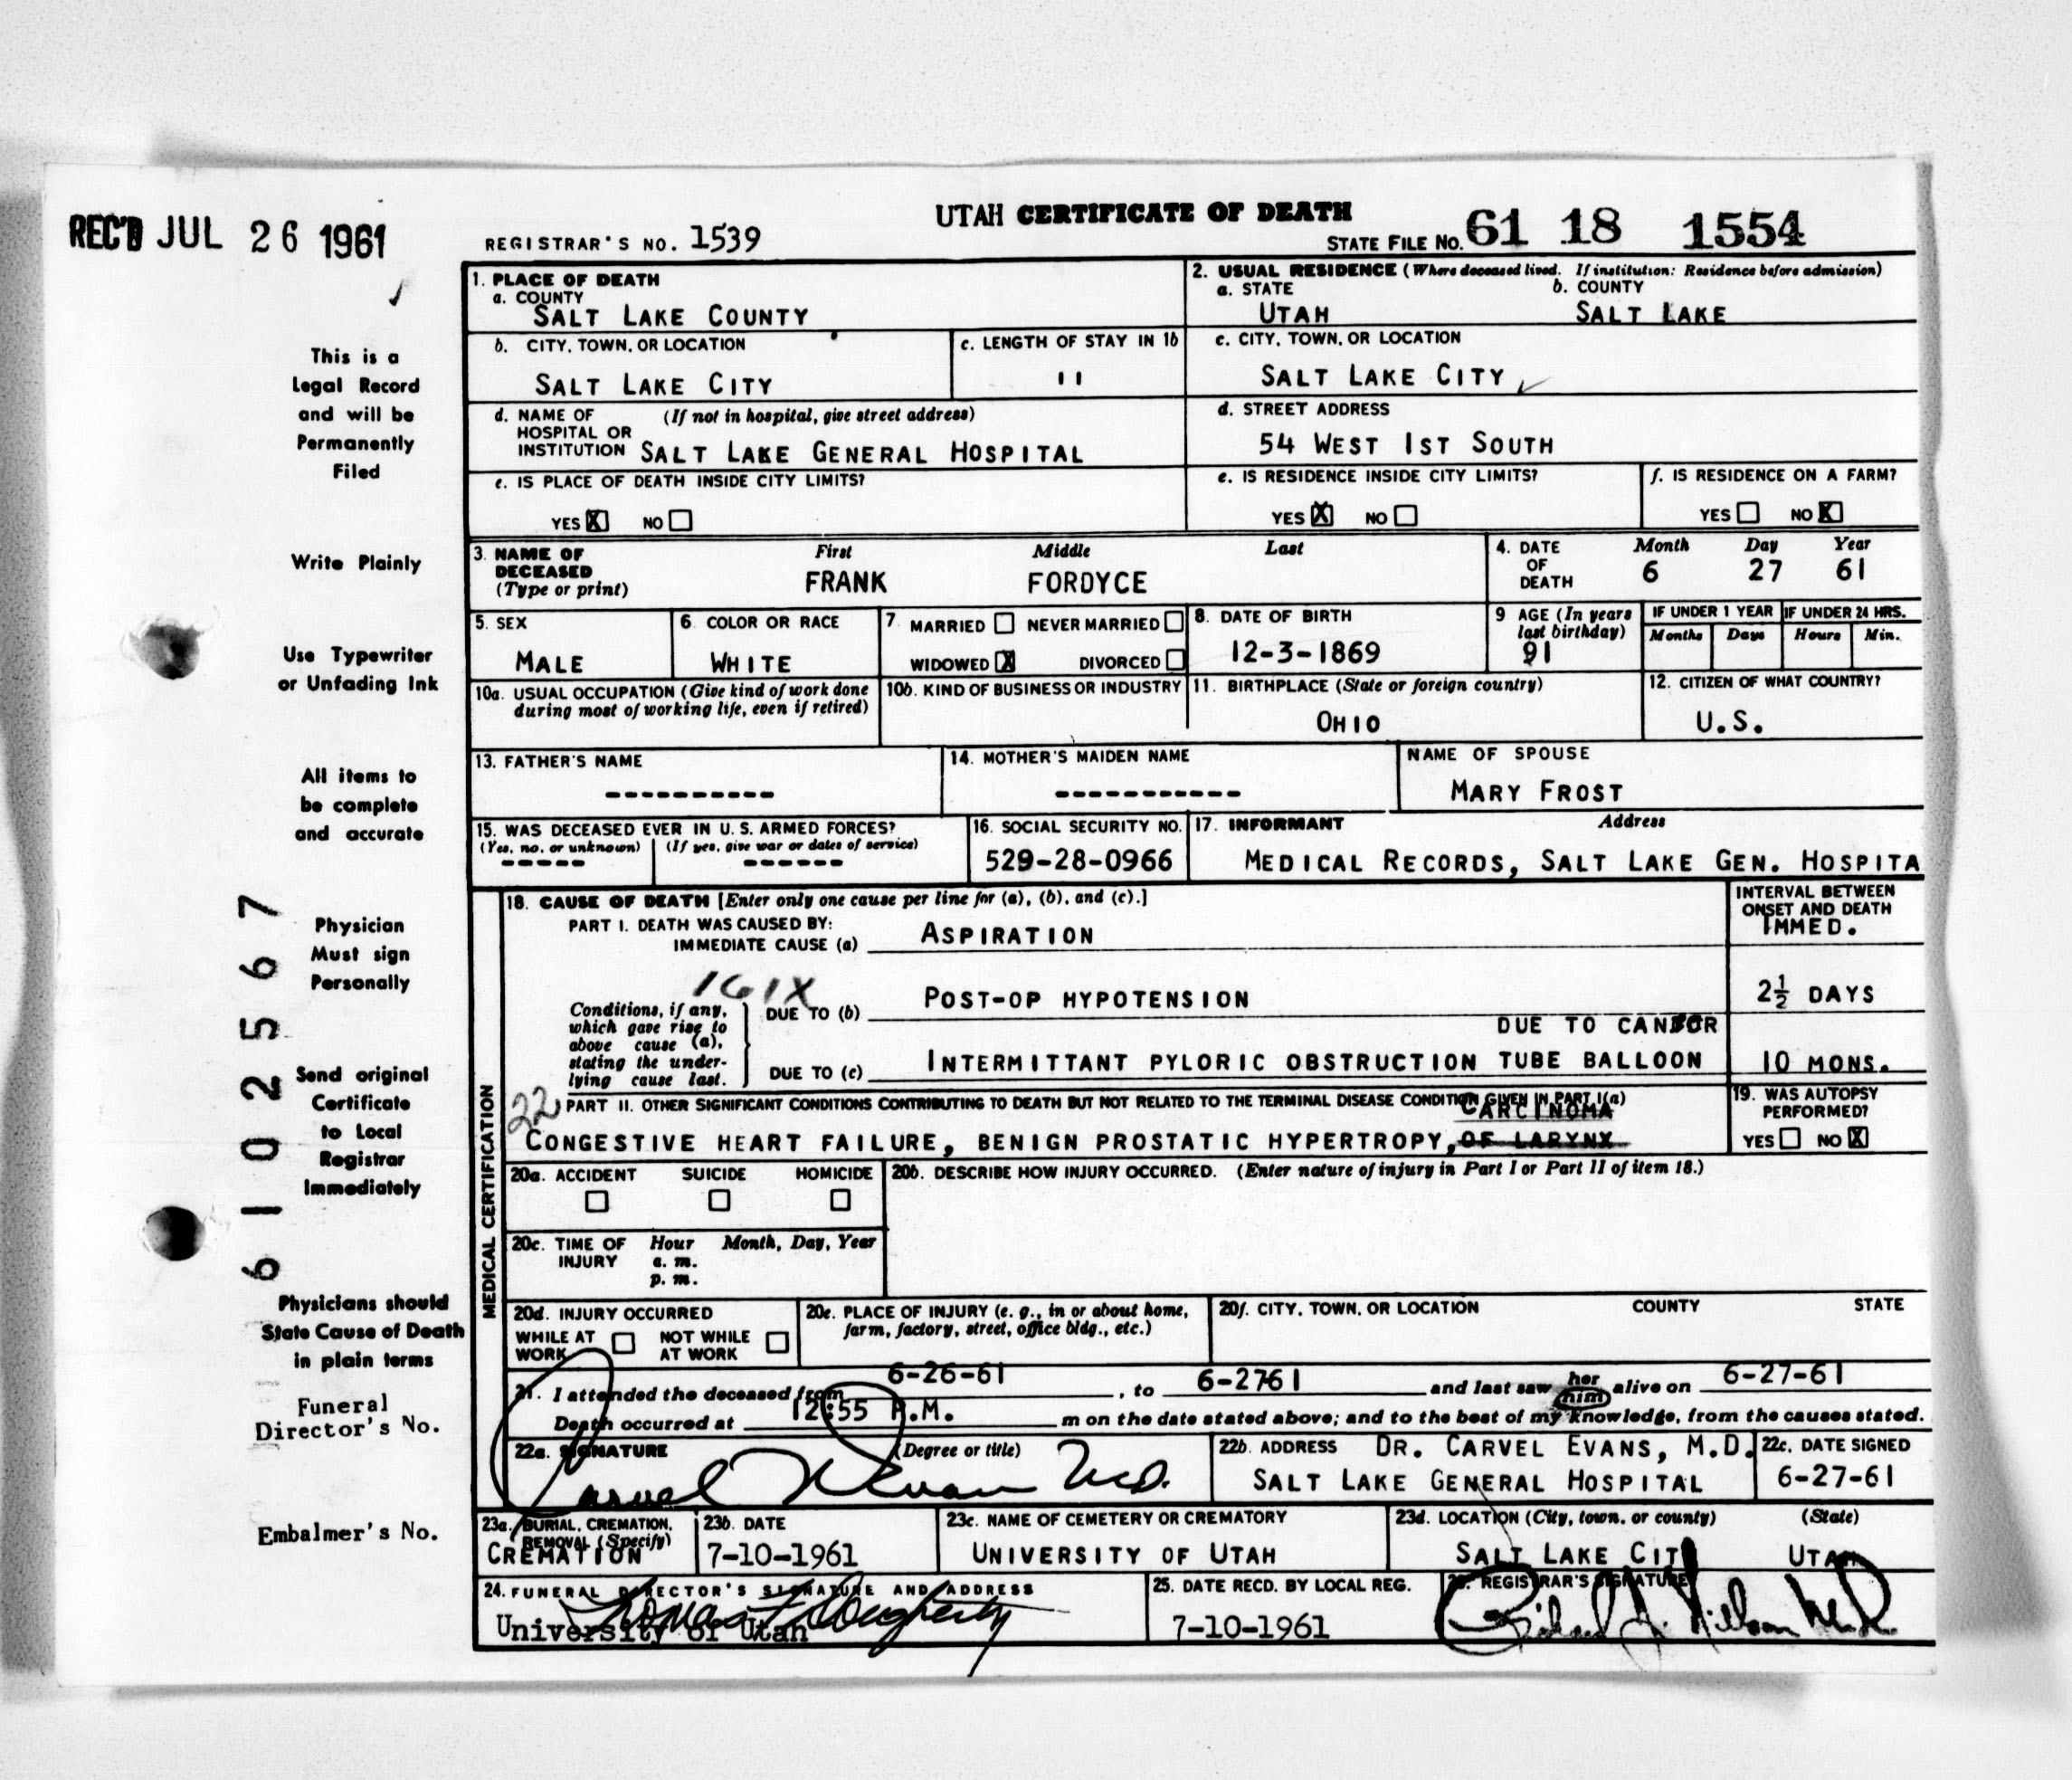 REC'D JUL 26 1961
UTAH CERTIFICATE OF DEATH
REGISTRAR'S NO. 1539
STATE FILE NO. 61 18 1554
This is a
Legal Record
and will be
Permanently
Filed
Write Plainly
Use Typewriter
or Unfading Ink
All items to
be complete
and accurate
Physician
Must sign
Personally
Send original
Certificate
to Local
Registrar
Immediately
Physicians should
State Cause of Death
in plain terms
Funeral
Director's No.
Embalmer's No.
61 02567
1. PLACE OF DEATH
a. COUNTY
SALT LAKE COUNTY
2. USUAL RESIDENCE (Where deceased lived. If institution: Residence before admission)
a. STATE b. COUNTY
UTAH SALT LAKE
b. CITY, TOWN, OR LOCATION
SALT LAKE CITY
c. LENGTH OF STAY IN 1b
11
c. CITY, TOWN, OR LOCATION
SALT LAKE CITY
d. NAME OF (If not in hospital, give street address)
HOSPITAL OR
INSTITUTION SALT LAKE GENERAL HOSPITAL
d. STREET ADDRESS
54 WEST 1ST SOUTH
e. IS PLACE OF DEATH INSIDE CITY LIMITS?
YES X NO
e. IS RESIDENCE INSIDE CITY LIMITS?
YES X NO
f. IS RESIDENCE ON A FARM?
YES NO X
3. NAME OF First Middle Last
DECEASED
(Type or print) FRANK FORDYCE
4. DATE Month Day Year
OF
DEATH 6 27 61
5. SEX
MALE
6. COLOR OR RACE
WHITE
7. MARRIED NEVER MARRIED
WIDOWED X DIVORCED
8. DATE OF BIRTH
12-3-1869
9 AGE (In years
last birthday)
91
IF UNDER 1 YEAR IF UNDER 24 HRS.
Months Days Hours Min.
10a. USUAL OCCUPATION (Give kind of work done
during most of working life, even if retired)
10b. KIND OF BUSINESS OR INDUSTRY
11. BIRTHPLACE (State or foreign country)
OHIO
12. CITIZEN OF WHAT COUNTRY?
U.S.
13. FATHER'S NAME
----------
14. MOTHER'S MAIDEN NAME
-----------
NAME OF SPOUSE
MARY FROST
15. WAS DECEASED EVER IN U.S. ARMED FORCES?
(Yes, no, or unknown) (If yes, give war or dates of service)
----- ------
16. SOCIAL SECURITY NO.
529-28-0966
17. INFORMANT Address
MEDICAL RECORDS, SALT LAKE GEN. HOSPITA
MEDICAL CERTIFICATION
18. CAUSE OF DEATH [Enter only one cause per line for (a), (b), and (c).]
PART I. DEATH WAS CAUSED BY:
IMMEDIATE CAUSE (a) ASPIRATION
INTERVAL BETWEEN
ONSET AND DEATH
IMMED.
161X
Conditions, if any,
which gave rise to
above cause (a),
stating the under-
lying cause last.
DUE TO (b) POST-OP HYPOTENSION 2½ DAYS
DUE TO
DUE TO (c) INTERMITTANT PYLORIC OBSTRUCTION TUBE BALLOON 10 MONS.
22
PART II. OTHER SIGNIFICANT CONDITIONS CONTRIBUTING TO DEATH BUT NOT RELATED TO THE TERMINAL DISEASE CONDITION GIVEN IN PART I(a)
CARCINOMA
CONGESTIVE HEART FAILURE, BENIGN PROSTATIC HYPERTROPY, OF LARYNX
19. WAS AUTOPSY
PERFORMED?
YES NO X
20a. ACCIDENT SUICIDE HOMICIDE
20b. DESCRIBE HOW INJURY OCCURRED. (Enter nature of injury in Part I or Part II of item 18.)
20c. TIME OF Hour Month, Day, Year
INJURY a. m.
p. m.
20d. INJURY OCCURRED
WHILE AT NOT WHILE
WORK AT WORK
20e. PLACE OF INJURY (e. g., in or about home,
farm, factory, street, office bldg., etc.)
20f. CITY, TOWN, OR LOCATION COUNTY STATE
21. I attended the deceased from 6-26-61, to 6-2761 and last saw her him alive on 6-27-61
Death occurred at 12:55 P.M. m on the date stated above; and to the best of my knowledge, from the causes stated.
22a. SIGNATURE (Degree or title)
Carvel Evans M.D.
22b. ADDRESS DR. CARVEL EVANS, M.D.
SALT LAKE GENERAL HOSPITAL
22c. DATE SIGNED
6-27-61
23a. BURIAL, CREMATION,
REMOVAL (Specify)
CREMATION
23b. DATE
7-10-1961
23c. NAME OF CEMETERY OR CREMATORY
UNIVERSITY OF UTAH
23d. LOCATION (City, town, or county) (State)
SALT LAKE CITY UTAH
24. FUNERAL DIRECTOR'S SIGNATURE AND ADDRESS
Thomas F Dougherty
University of Utah
25. DATE RECD. BY LOCAL REG.
7-10-1961
26. REGISTRAR'S SIGNATURE